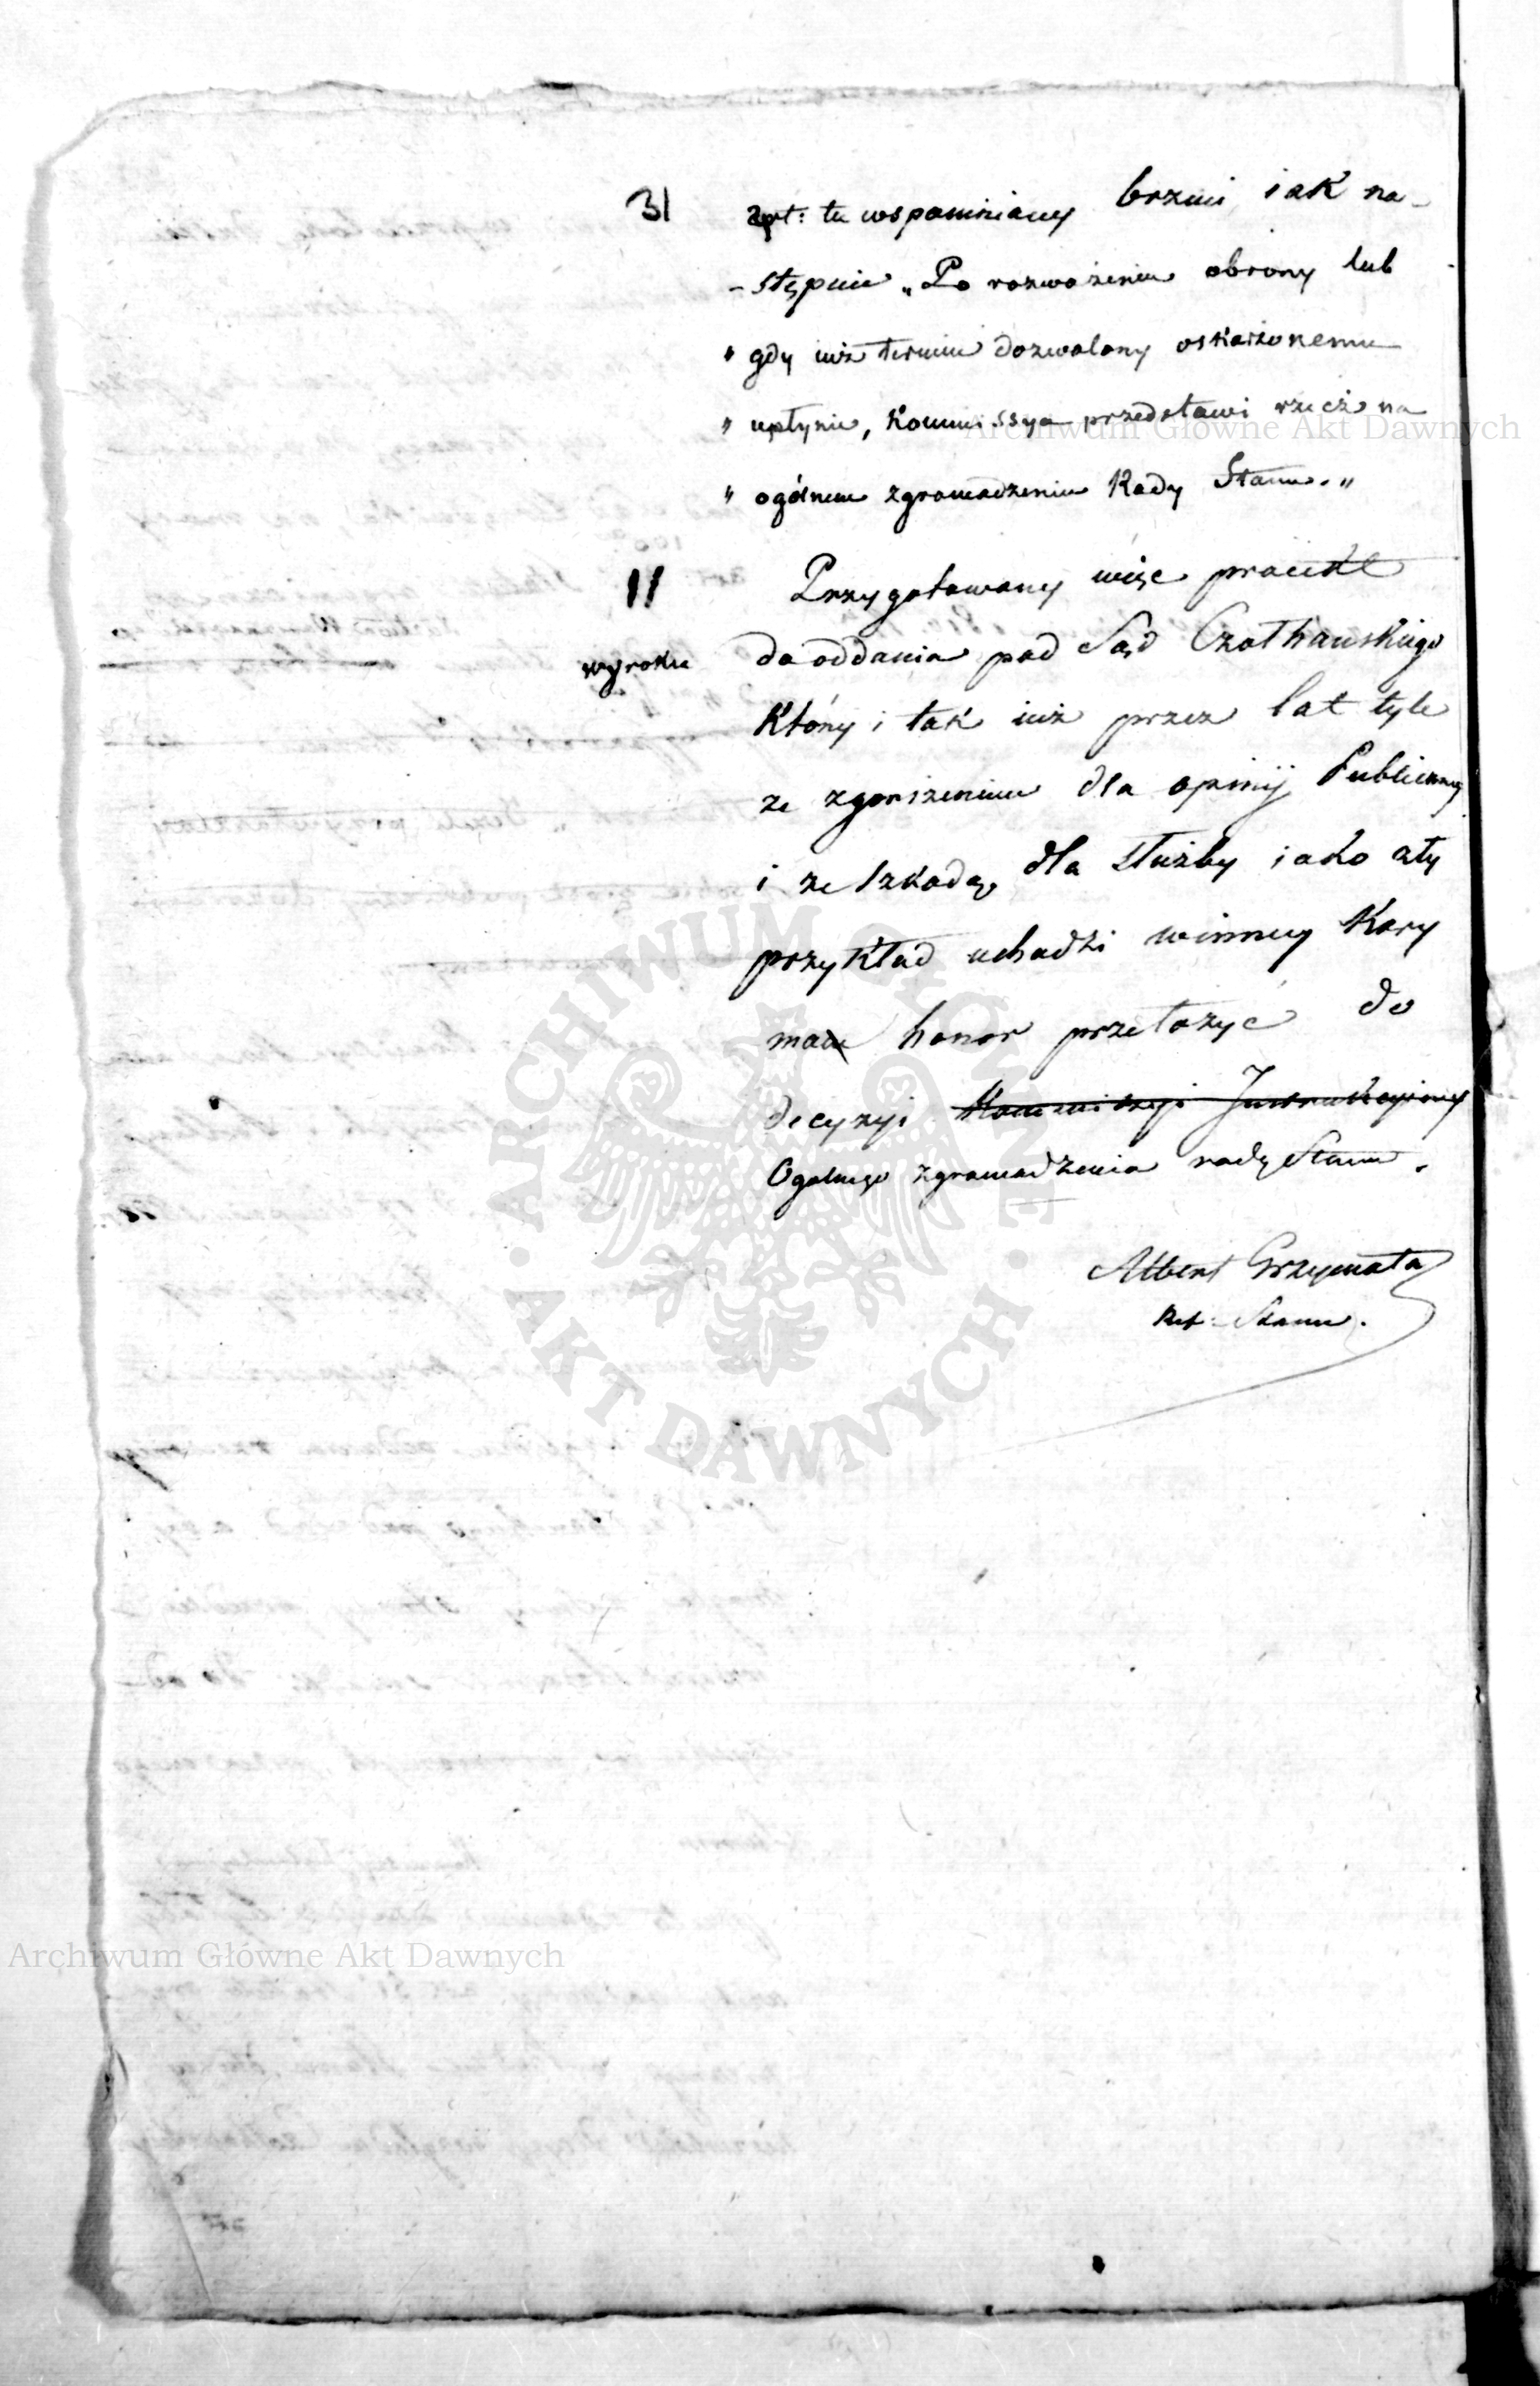 31 art: tu wspomniany brzmi iak na-
-stępnie „Po rozważeniu obrony lub
" gdy iuż termin dozwolony oskarżonemu
" upłynie, Kommissya przedstawi rzecz na
" ogólnem zgromadzeniu Rady Stanu."
11 Przygotowany więc proiekt
wyroku do oddania pod Sąd Czathauskiego
Który i tak iuż przez lat tyle
ze zgorszeniem dla opinij Publiczney
i ze szkodą, dla służby iako zły
przykład uchodzi winney Kary
mam honor przełożyć do
decyzyi Kommissyi Instrukcyiney
Ogolnego zgromadzenia rady Stanu.
Albert Grzymała
Ref: Stanu.
Archiwum Główne Akt Dawnych
ARCHIWUM GŁÓWNE
• AKT DAWNYCH •
Archiwum Główne Akt Dawnych